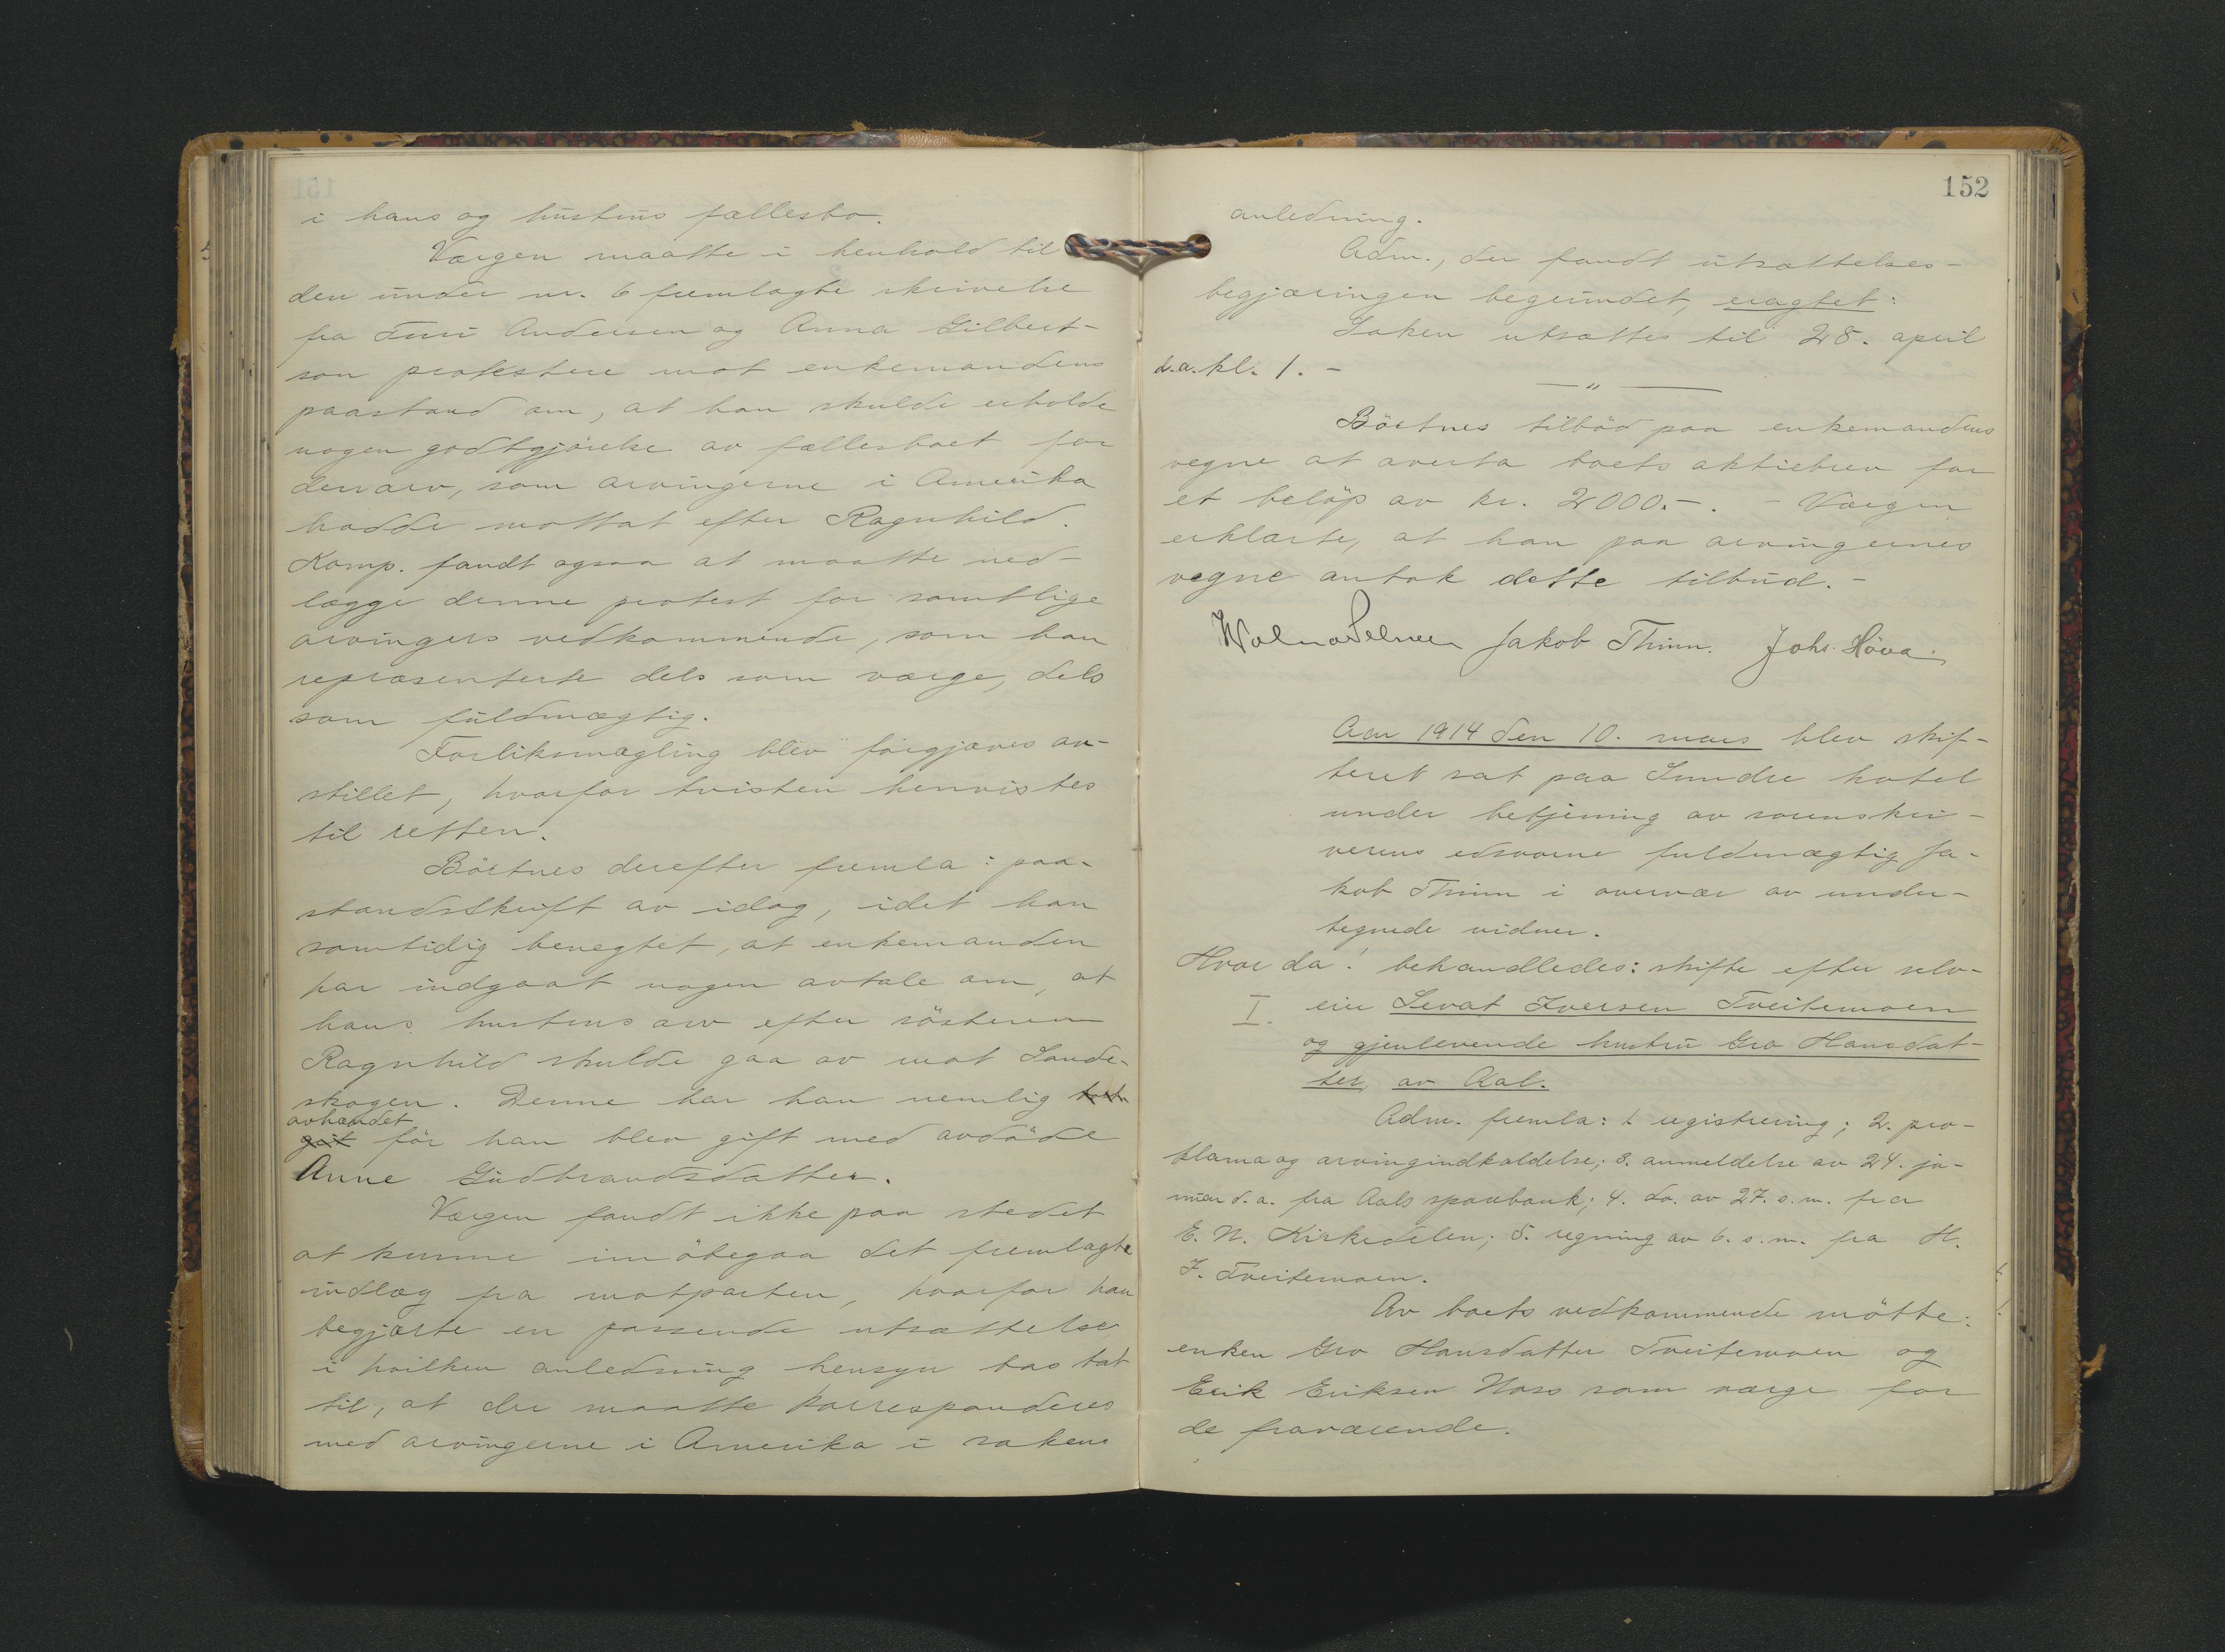 i hans og hustrus fællesbo.
Værgen maatte i henhold til
den under nr. 6 fremlagte skrivelse
fra Turi Andersen og Anna Gilbert-
son protestere mot enkemandens
paastand om, at han skulde erholde
nogen godtgjörelse av fællesboet for
den arv, som arvingerne i Amerika
hadde mottat efter Ragnhild.
Komp. fandt ogsaa at maatte ned-
lægge denne protest for samtlige
arvingers vedkommende, som han
repræsenterte dels som værge, dels
som fuldmægtig.
Forliksmægling blev forgjæves an-
stillet, hvorfor tvisten henvistes
til retten.
Börtnes derefter fremla: paa-
standsskrift av idag, idet han
samtidig benegtet, at enkemanden
har indgaat nogen avtale om, at
hans hustrus arv efter sösteren
Ragnhild skulde gaa av mot Sande-
skogen. Denne har han nemlig
avhændet
för han blev gift med avdöde
Anne Gudbrandsdatter.
Værgen fandt ikke paa stedet
at kunne imötegaa det fremlagte
indlæg fra motparten, hvorfor han
begjærte en passende utsættelse
i hvilken anledning hensyn bas tat
til, at der maatte korresponderes
med arvingerne i Amerika i sakens
152
anledning.
Adm., der fandt utsættelses-
begjæringen begrundet, eragtet:
Saken utsættes til 28. april
d.a. kl. 1. -
— " —
Börtnes tilböd paa enkemandens
vegne at overta boets aktiebrev for
et belöp av kr. 2000.-. - Værgen
erklærte, at han paa arvingernes
vegne antok dette tilbud. -
Jakob Thinn. Johs. Höva.
Aar 1914 den 10. mars blev skif-
teret sat paa Sundre hotel
under betjening av sorenskri-
verens edsvorne fuldmægtig Ja-
kob Thinn i overvær av under-
tegnede vidner.
Hvor da! behandledes: skifte efter selv-
I. eier Sevat Iversen Tveitemoen
og gjenlevende hustru Gro Hansdat-
ter av Aal.
Adm. fremla: 1 registrering; 2. pro-
klama og arvingindkaldelse; 3. anmeldelse av 24. ja-
nuar d.a. fra Aals sparebank; 4. do. av 27. s.m. fra
E. N. Kirkedelen; 5. regning av 6. s.m. fra H.
I. Tveitemoen.
Av boets vedkommende mötte:
enken Gro Hansdatter Tveitemoen og
Erik Eriksen Noss som værge for
de fraværende.